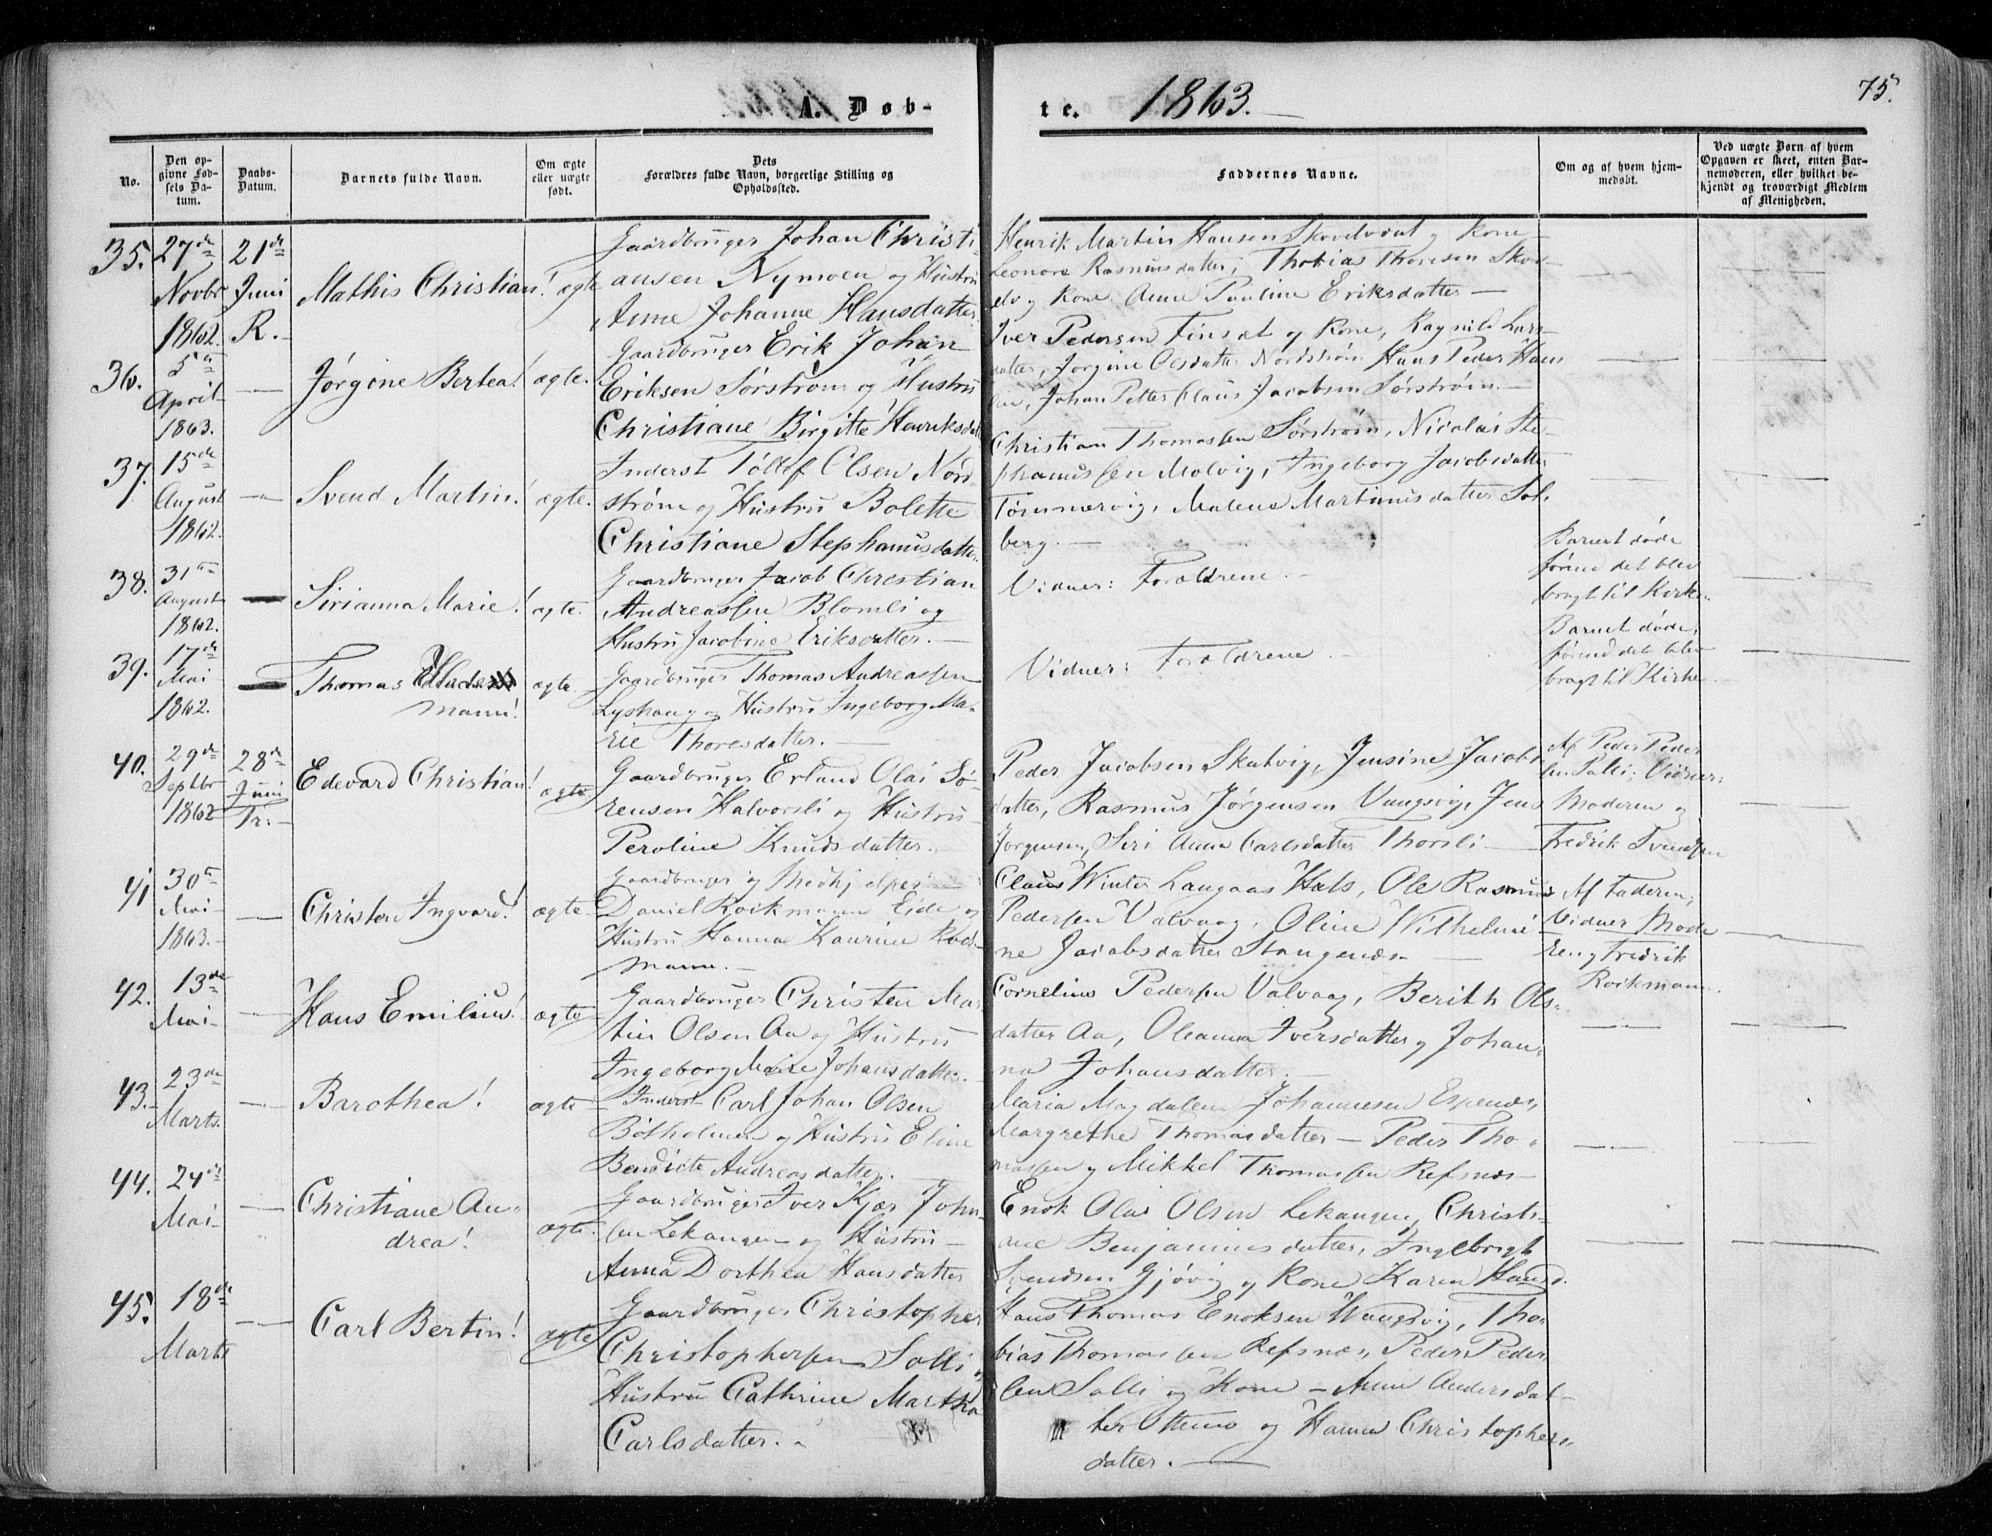 A. Døb-
te. 1863.
75.
No.
Den op-
givne Fød-
sels Da-
tum.
Daabs-
Datum.
Barnets fulde Navn.
Om ægte
eller uægte
født.
Dets
Forældres fulde Navn, borgerlige Stilling og
Opholdssted.
Faddernes Navne.
Om og af hvem hjem-
medøbt.
Ved uægte Børn af hvem
Opgaven er skeet, enten Bar-
nemoderen, eller hvilket be-
kjendt og troværdigt Medlem
af Menigheden.
35.
27de
Novbr
1862.
21de
Juni
R.
Mathis Christian!
ægte
Gaardbruger Johan Christi-
ansen Nymoen og Hustru
Anne Johanne Hansdatter
Henrik Martin Hansen og Kone
Leonore Rasmusdatter, Thobias Thoresen Skov-
elv og Kone Anne Pauline Eriksdatter —
36.
5te
April
1863.
—
Jørgine Bertea!
ægte.
Gaardbruger Erik Johan
Eriksen Sørstrøm og Hustru
Christiane Birgitte Henriksdat
Iver Pedersen Finsæt og Kone, Ragnild Lars-
datter, Jørgine Olsdatter Nordstrøm Hans Peder Han
sen, Johan Petter Claus Jacobsen Sørstrøm. —
37.
15de
August
1862.
—
Svend Martin!
ægte.
Inderst Tollef Olsen Nord
strøm og Hustru Bolette
Christiane Stephanusdatter.
Christian Thomassen Sørstrøm, Nicolai Ste-
phanussen Molvig, Ingeborg Jacobsdatter
Tømmervig, Malene Martinusdatter Sol-
berg. —
38.
31te
August
1862.
—
Sirianna Marie!
ægte.
Gaardbruger Jacob Christian
Andreassen Blomli og
Hustru Jacobine Eriksdatter. —
Vidner: Forældrene. —
Barnet døde
førend det blev
bragt til Kirke.
39.
17de
Mai
1862.
—
Thomas
mann!
ægte.
Gaardbruger Thomas Andreassen
Lyshaug og Hustru Ingeborg Ma-
rie Thoresdatter. —
Vidner: Forældrene —
Barnet døde,
førend det blev
bragt til Kirke
40.
29de
Septbr
1862
28de
Juni
Tr.
Edevard Christian!
ægte
Gaardbruger Erland Olai Sø-
rensen Halvorsli og Hustru
Peroline Knudsdatter.
Peder Jacobsen Skatvig, Jensine Jacobs
datter, Rasmus Jørgensen Vangsvig, Jens
Jørgensen, Siri Anna Carlsdatter Thorsli. —
Af Peder Peder
sen Solli; Vidner:
Moderen og
Fredrik Svendsen
41
30te
Mai
1863.
—
Christen Ingvard!
ægte
Gaardbruger og Medhjelper
Daniel Roikmann Eide og
Hustru Hanna Kaurine Roik-
mann. —
Claus Winter Langaas Hals, Ole Rasmus
Pedersen Valvaag, Oline Wilhelmi-
ne Jacobsdatter Stangenæs —
Af Faderen,
Vidner Mode
ren og Fredrik
Roikmann.
42.
13de
Mai
—
Hans Emilius!
ægte
Gaardbruger Christen Mar-
tin Olsen Aa og Hustru
Ingeborg Marie Johansdatter.
Cornelius Pedersen Valvaag, Berith Ols-
datter Aa, Oleanna Iversdatter og Johan-
na Johansdatter. —
43.
23de
Marts.
—
Barothea!
ægte
Inderst Carl Johan Olsen
Botholmen og Hustru Eline
Bendicte Andreasdatter.
Maria Magdalena Johannesen Espenæs,
Margrethe Thomasdatter — Peder Tho-
massen og Mikkel Thomassen Refsnæs —
44.
24de
Mai
—
Christiane An-
drea!
ægte.
Gaardbruger Iver Kjær John-
sen Lekangen og Hustru
Anna Dorthea Hansdatter
Enok Olai Olsen Lekangen, Christi-
ane Benjaminsdatter, Ingebrigt
Svendsen Gjøvig og Kone Karen Hansd.
45.
18de
Marts
—
Carl Bertin!
ægte
Gaardbruger Christopher
Christophersen Solli og
Hustru Cathrine Martha
Carlsdatter.
Hans Thomas Enoksen Wangsvig, Tho-
bias Thomassen Refsnæs, Peder Peder
sen Solli og Kone — Anne Andersdat-
ter og Hanna Christophers-
datter. —